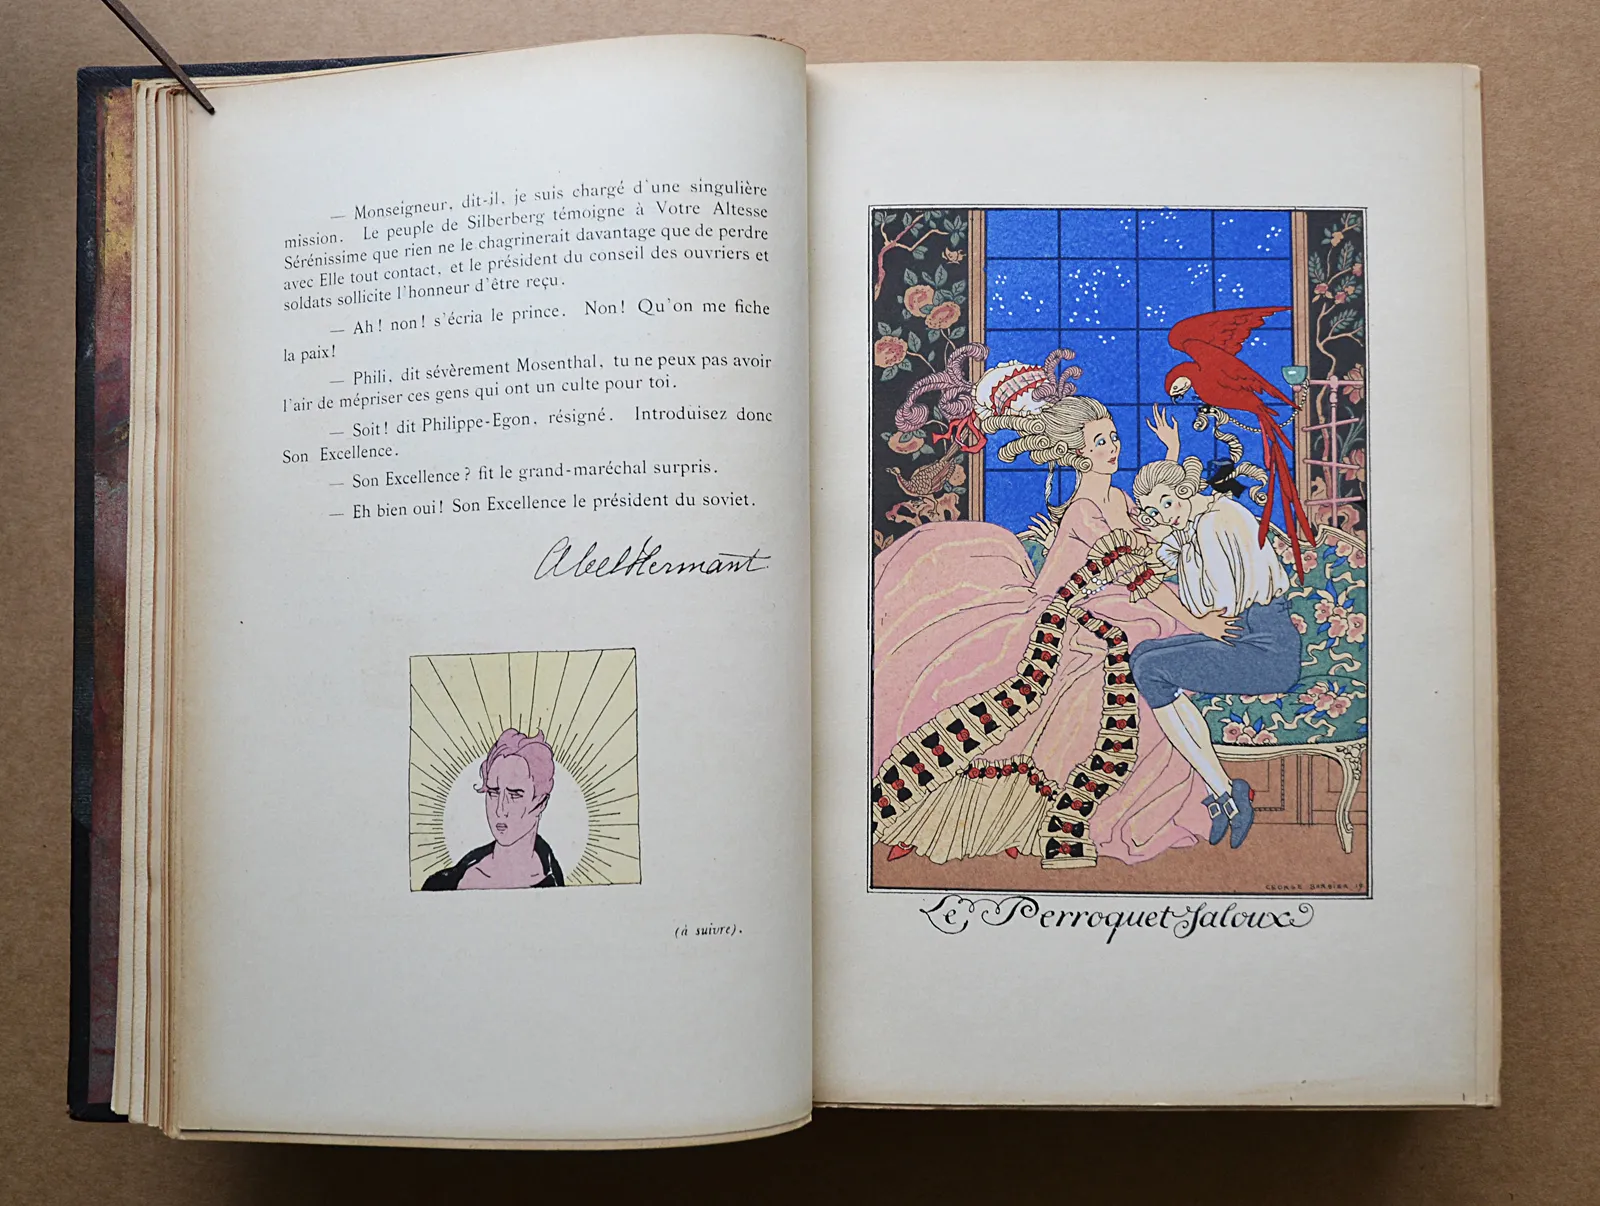 — Monseigneur, dit-il, je suis chargé d'une singulière
mission. Le peuple de Silberberg témoigne à Votre Altesse
Sérénissime que rien ne le chagrinerait davantage que de perdre
avec Elle tout contact, et le président du conseil des ouvriers et
soldats sollicite l'honneur d'être reçu.
— Ah! non! s'écria le prince. Non! Qu'on me fiche
la paix!
— Phili, dit sévèrement Mosenthal, tu ne peux pas avoir
l'air de mépriser ces gens qui ont un culte pour toi.
— Soit! dit Philippe-Egon, résigné. Introduisez donc
Son Excellence.
— Son Excellence? fit le grand-maréchal surpris.
— Eh bien oui! Son Excellence le président du soviet.
Abel Hermant
(à suivre).
GEORGE BARBIER 19
Le Perroquet Jaloux